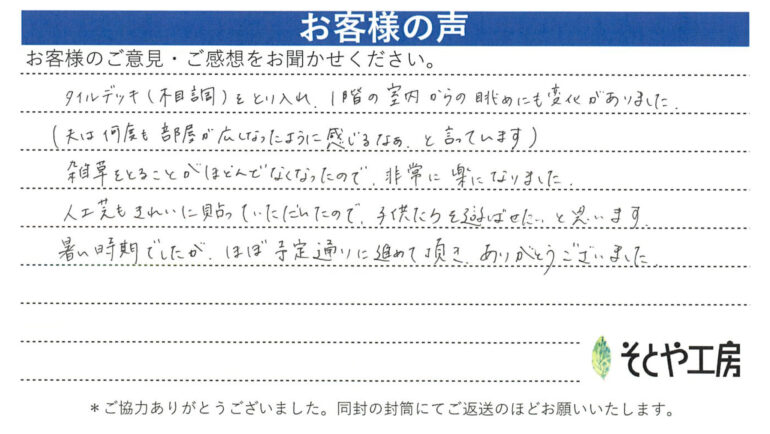 お客様の声
お客様のご意見・ご感想をお聞かせください。
タイルデッキ(木目調)をとり入れ、1階の室内からの眺めにも変化がありました。
(夫は何度も部屋が広くなったように感じるなぁ、と言っています)
雑草をとることがほどんでなくなったので、非常に楽になりました。
人工芝もきれいに貼っていただいたので、子供たちを遊ばせたいと思います。
暑い時期でしたが、ほぼ予定通りに進めて頂き、ありがとうございました。
そとや工房
＊ご協力ありがとうございました。同封の封筒にてご返送のほどお願いいたします。